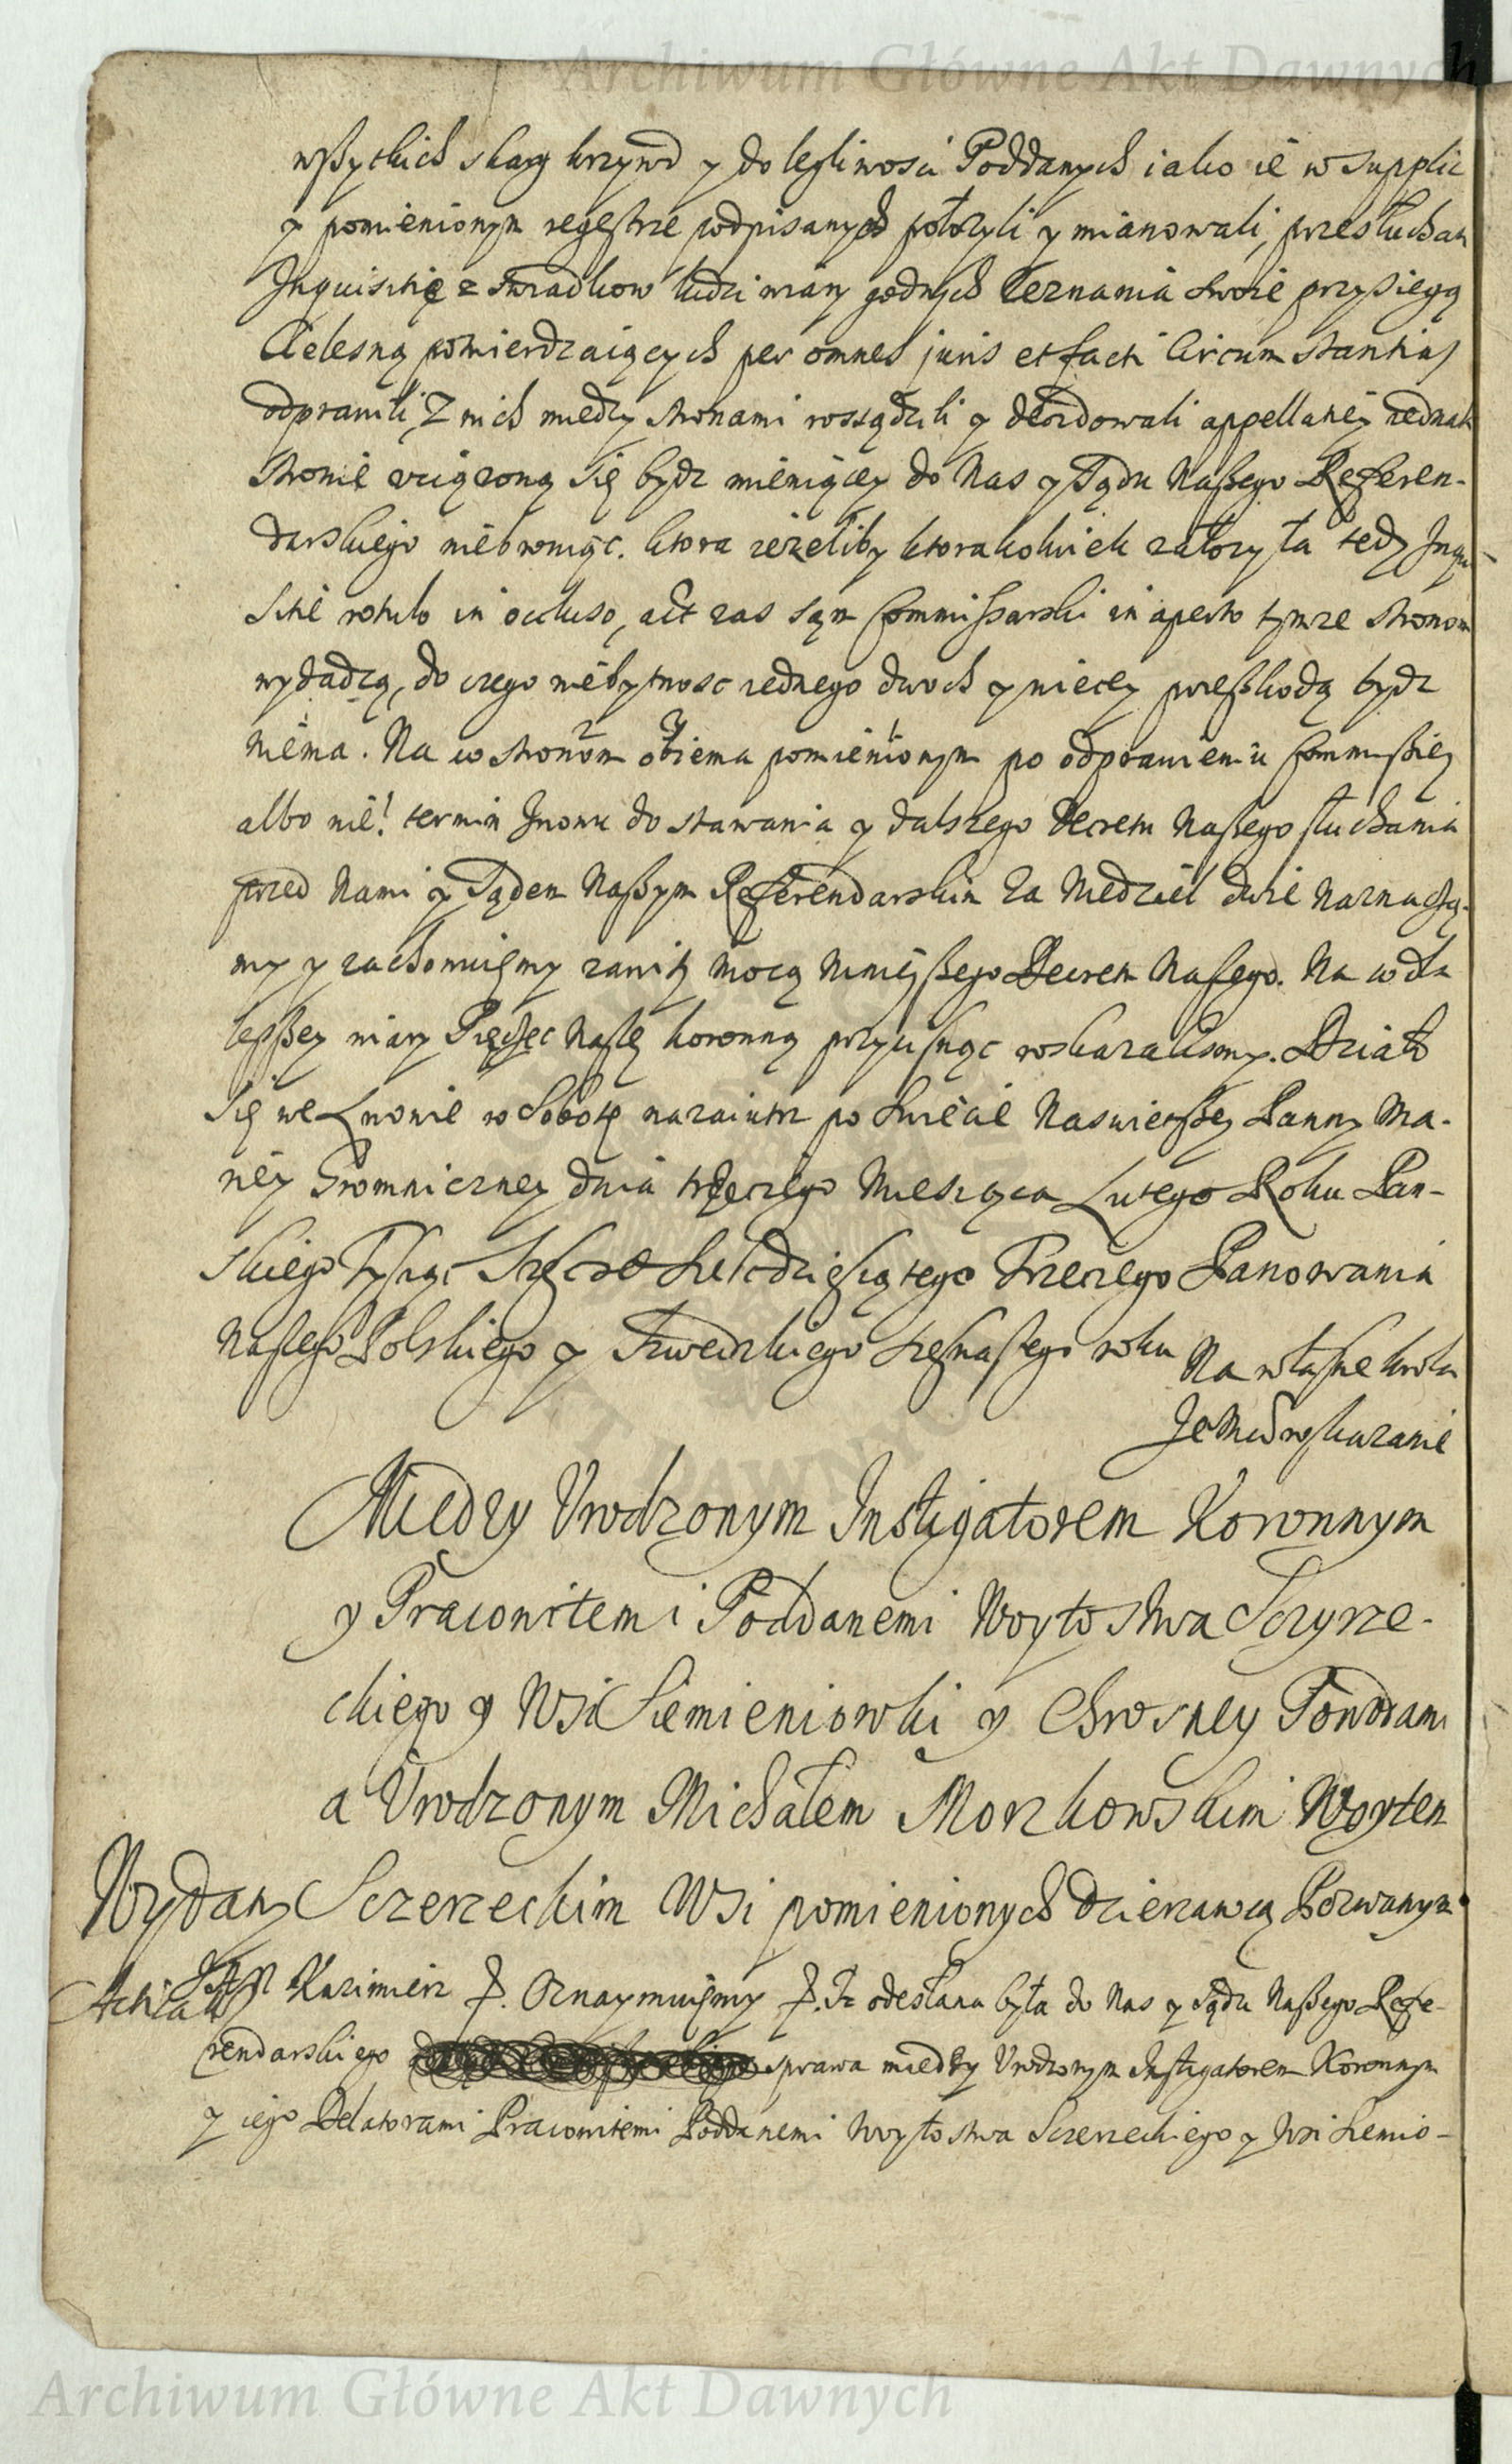 Archiwum Główne Akt Dawnych
wßytkich skarg krzywd y dolegliwosci Poddanych iako ie w supplic
y pomienionym regestrze podpisanych położyli y mianowali, przesłuchali
Inquisitię z swiadkow ludzi wiary godnych zeznania swoie przysięgą
Cielesną potwierdzaiących per omnes juris et facti Circumstantias
odprawili, Z nich między stronami rossądzili y decydowali appellatiey iednak
stronie vciążoną się bydz mieniącey do Nas y Sądu Naßego Referen-
darskiego niebroniąc. ktora ieżeliby ktorakolwiek założyła tedy Inqui-
sitie rotulo in occluso, act zas sąm Commißarski in aperto tymże stronom
wydadzą, do czego niebytnosc iednego dwoch y więcey przeßkodą bydz
niema. Na co stronom obiema pomienionym po odprawieniu Commißiey
albo nie! termin znowu do stawania y dalszego Decretu Naßego słuchania
przed Nami y Sądem Naßym Referendarskim Za Niedziel dwie Naznaczą-
my y zachowuięmy zawity mocą Ninieyßego Decretu Naßego. Na co dla
lepßey wiary Pieczęc Naßę koronną przycisnąc roskazalismy. Działo
Się we Lwowie w Sobotę nazaiutrz po Swięcie Naswiętßey Panny Ma-
riey Gromniczney dnia trzeciego Miesząca Lutego Roku Pan-
skiego Tysiąc Szescset Szescdziesiątego Trzeciego Panowania
Naßego Polskiego y Szwedzkiego Piętnastego roku Na własne krola
Je Mci roskazanie
Miedzy Vrodzonym Instigatorem Koronnym
y Pracowitemi Poddanemi Woytostwa Sczyrze-
ckiego y Wsi Siemieniowki y Chrosney Powodami
a Vrodzonym Michałem Morzkowskim Woytem
Wydany Sczerzeckim Wsi pomienionych dzierzawcą Pozwanym
Actica
Jan Kazimierz P. Oznaymuięmy P. Iż odesłana była do Nas y Sądu Naßego Refe-
rendarskiego sprawa miedzy Vrodzonym Instigatorem Koronnym
y iego Delatorami Pracowitemi Poddanemi Woytostwa Sczerzeckiego y Wsi Siemio-
Archiwum Główne Akt Dawnych